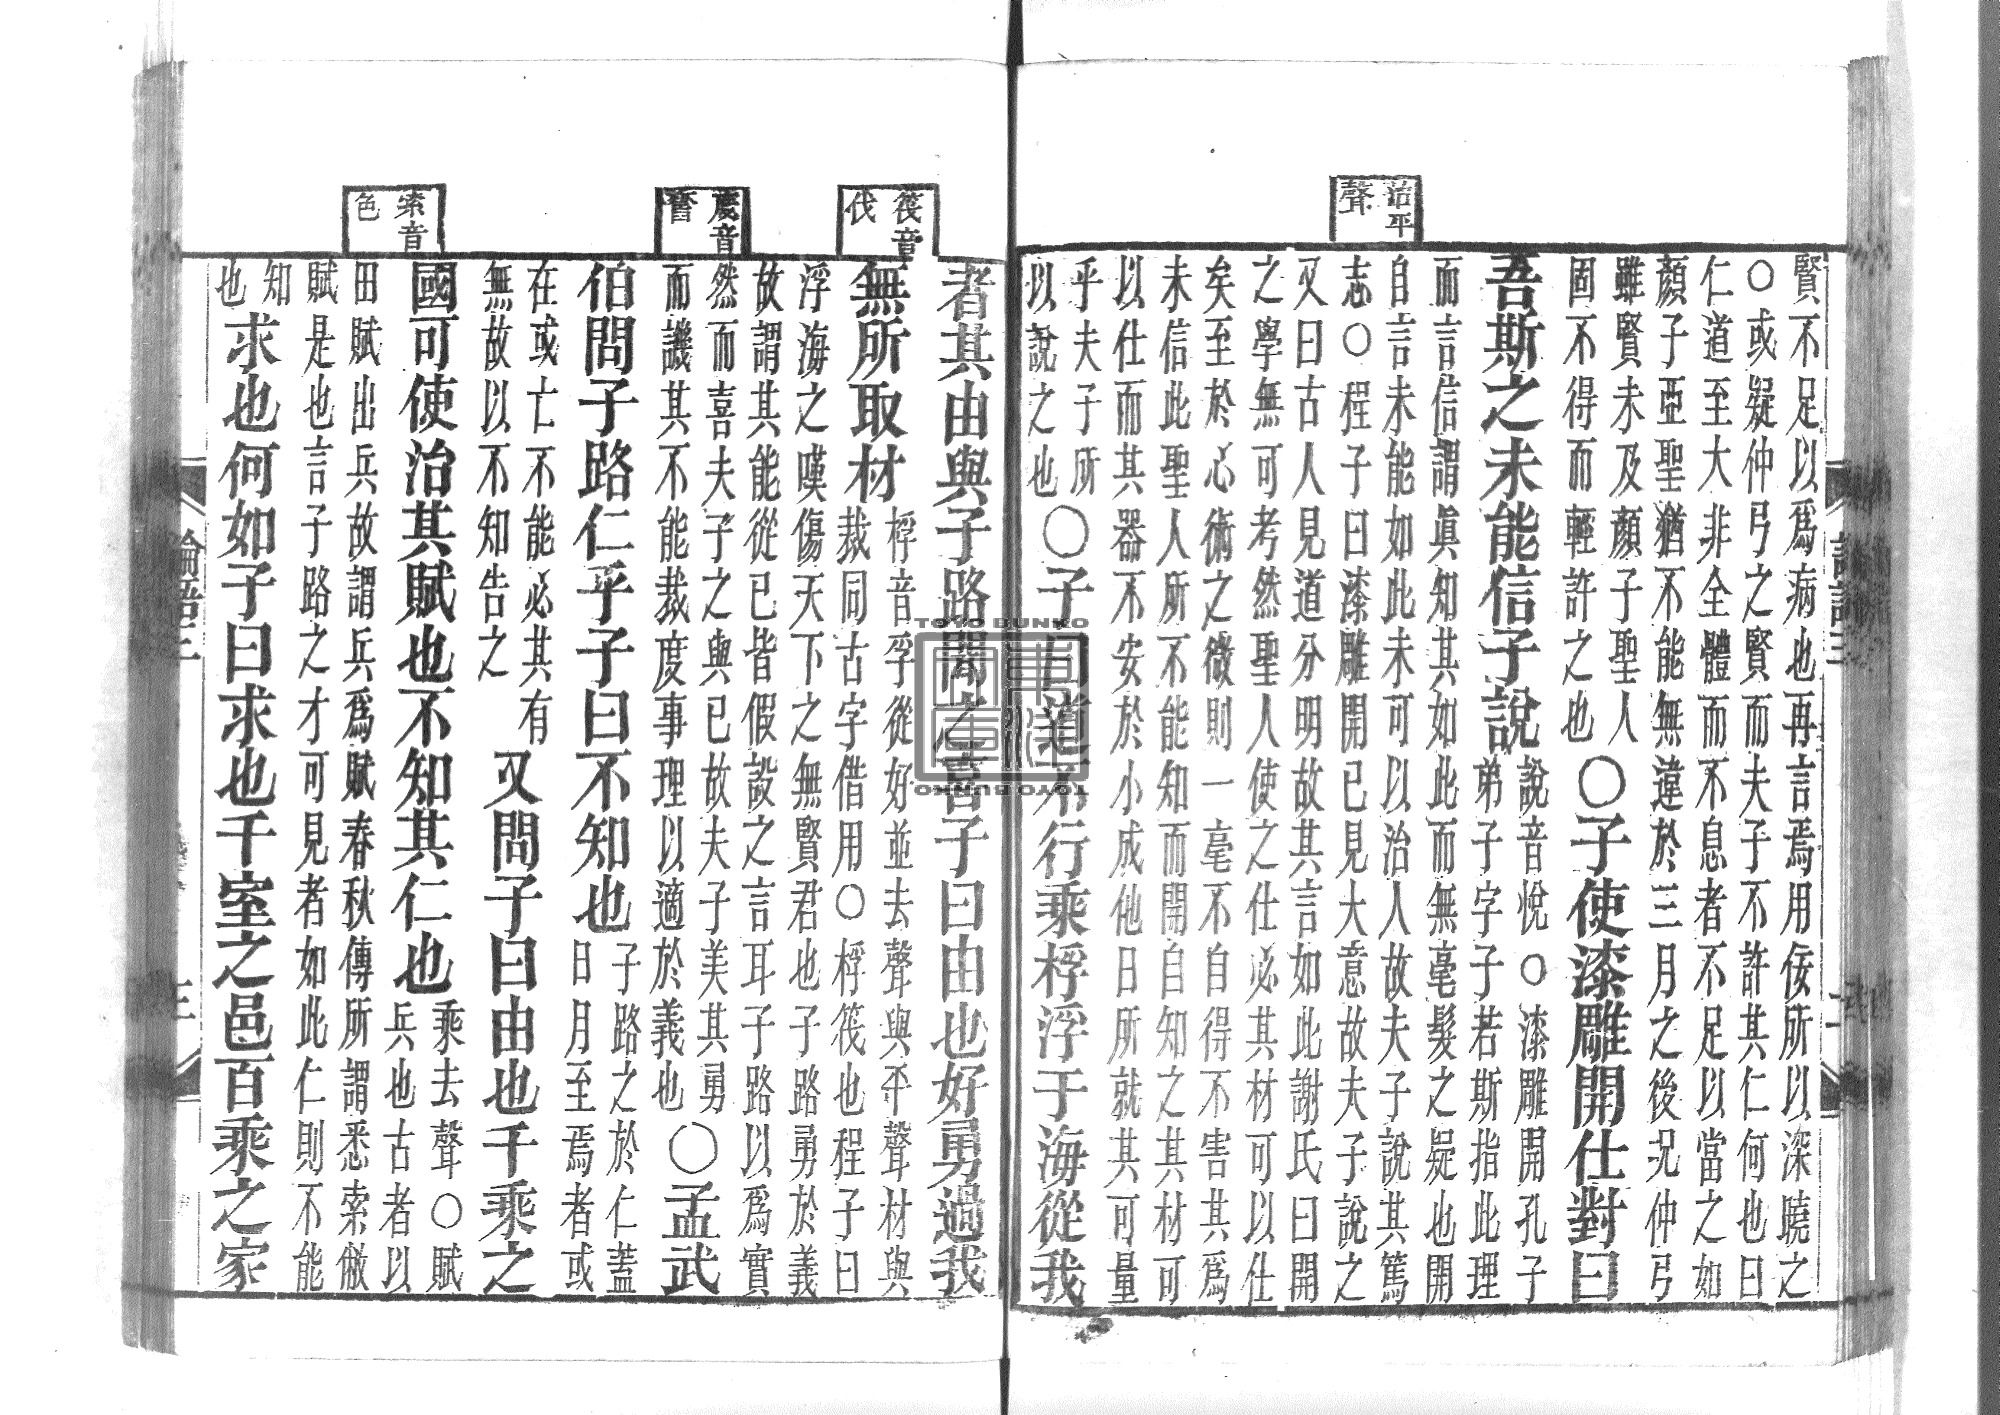 治平
聲
賢不足以爲病也再言焉用佞所以深曉之
○或疑仲弓之賢而夫子不許其仁何也曰
仁道至大非全體而不息者不足以當之如
顏子亞聖猶不能無違於三月之後况仲弓
雖賢未及顏子聖人
固不得而輕許之也
○子使漆雕開仕對曰
吾斯之未能信子說
說音悅○漆雕開孔子
弟子字子若斯指此理
而言信謂眞知其如此而無毫髮之疑也開
自言未能如此未可以治人故夫子說其篤
志○程子曰漆雕開已見大意故夫子說之
又曰古人見道分明故其言如此謝氏曰開
之學無可考然聖人使之仕必其材可以仕
矣至於心術之微則一毫不自得不害其爲
未信此聖人所不能知而開自知之其材可
以仕而其器不安於小成他日所就其可量
乎夫子所
以說之也
○子曰道不行乘桴浮于海從我
筏音
伐
度音
索音
色
者其由與子路聞之喜子曰由也好勇過我
無所取材
桴音孚從好並去聲與平聲材與
裁同古字借用○桴筏也程子曰
浮海之嘆傷天下之無賢君也子路勇於義
故謂其能從已皆假設之言耳子路以爲實
然而喜夫子之與已故夫子美其勇
而譏其不能裁度事理以適於義也
○孟武
伯問子路仁乎子曰不知也
子路之於仁蓋
日月至焉者或
在或亡不能必其有
無故以不知告之
又問子曰由也千乘之
國可使治其賦也不知其仁也
乘去聲○賦
兵也古者以
田賦出兵故謂兵爲賦春秋傳所謂悉索敝
賦是也言子路之才可見者如此仁則不能
知
也
求也何如子曰求也千室之邑百乘之家
論語三
三
TOYO BUNKO
TOYO BUNKO